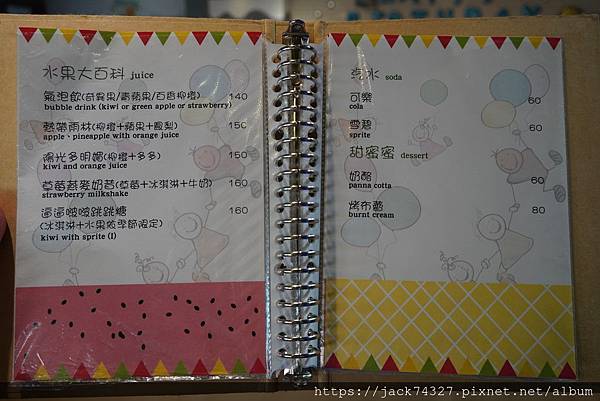 水果大百科 juice
氣泡飲(奇異果/青蘋果/百香柳橙) 140
bubble drink (kiwi or green apple or strawberry)
熱帶雨林(柳橙+蘋果+鳳梨) 150
apple、pineapple with orange juice
陽光多明媚(柳橙+多多) 150
kiwi and orange juice
草莓蕎麥奶昔(草莓+冰淇淋+牛奶) 160
strawberry milkshake
逗逗啵啵跳跳糖 160
(冰淇淋+水果依季節限定)
kiwi with sprite (I)
汽水 soda
可樂 60
cola
雪碧 60
sprite
甜蜜蜜 dessert
奶酪 60
panna cotta
烤布蕾 80
burnt cream
https://jack74327.pixnet.net/album